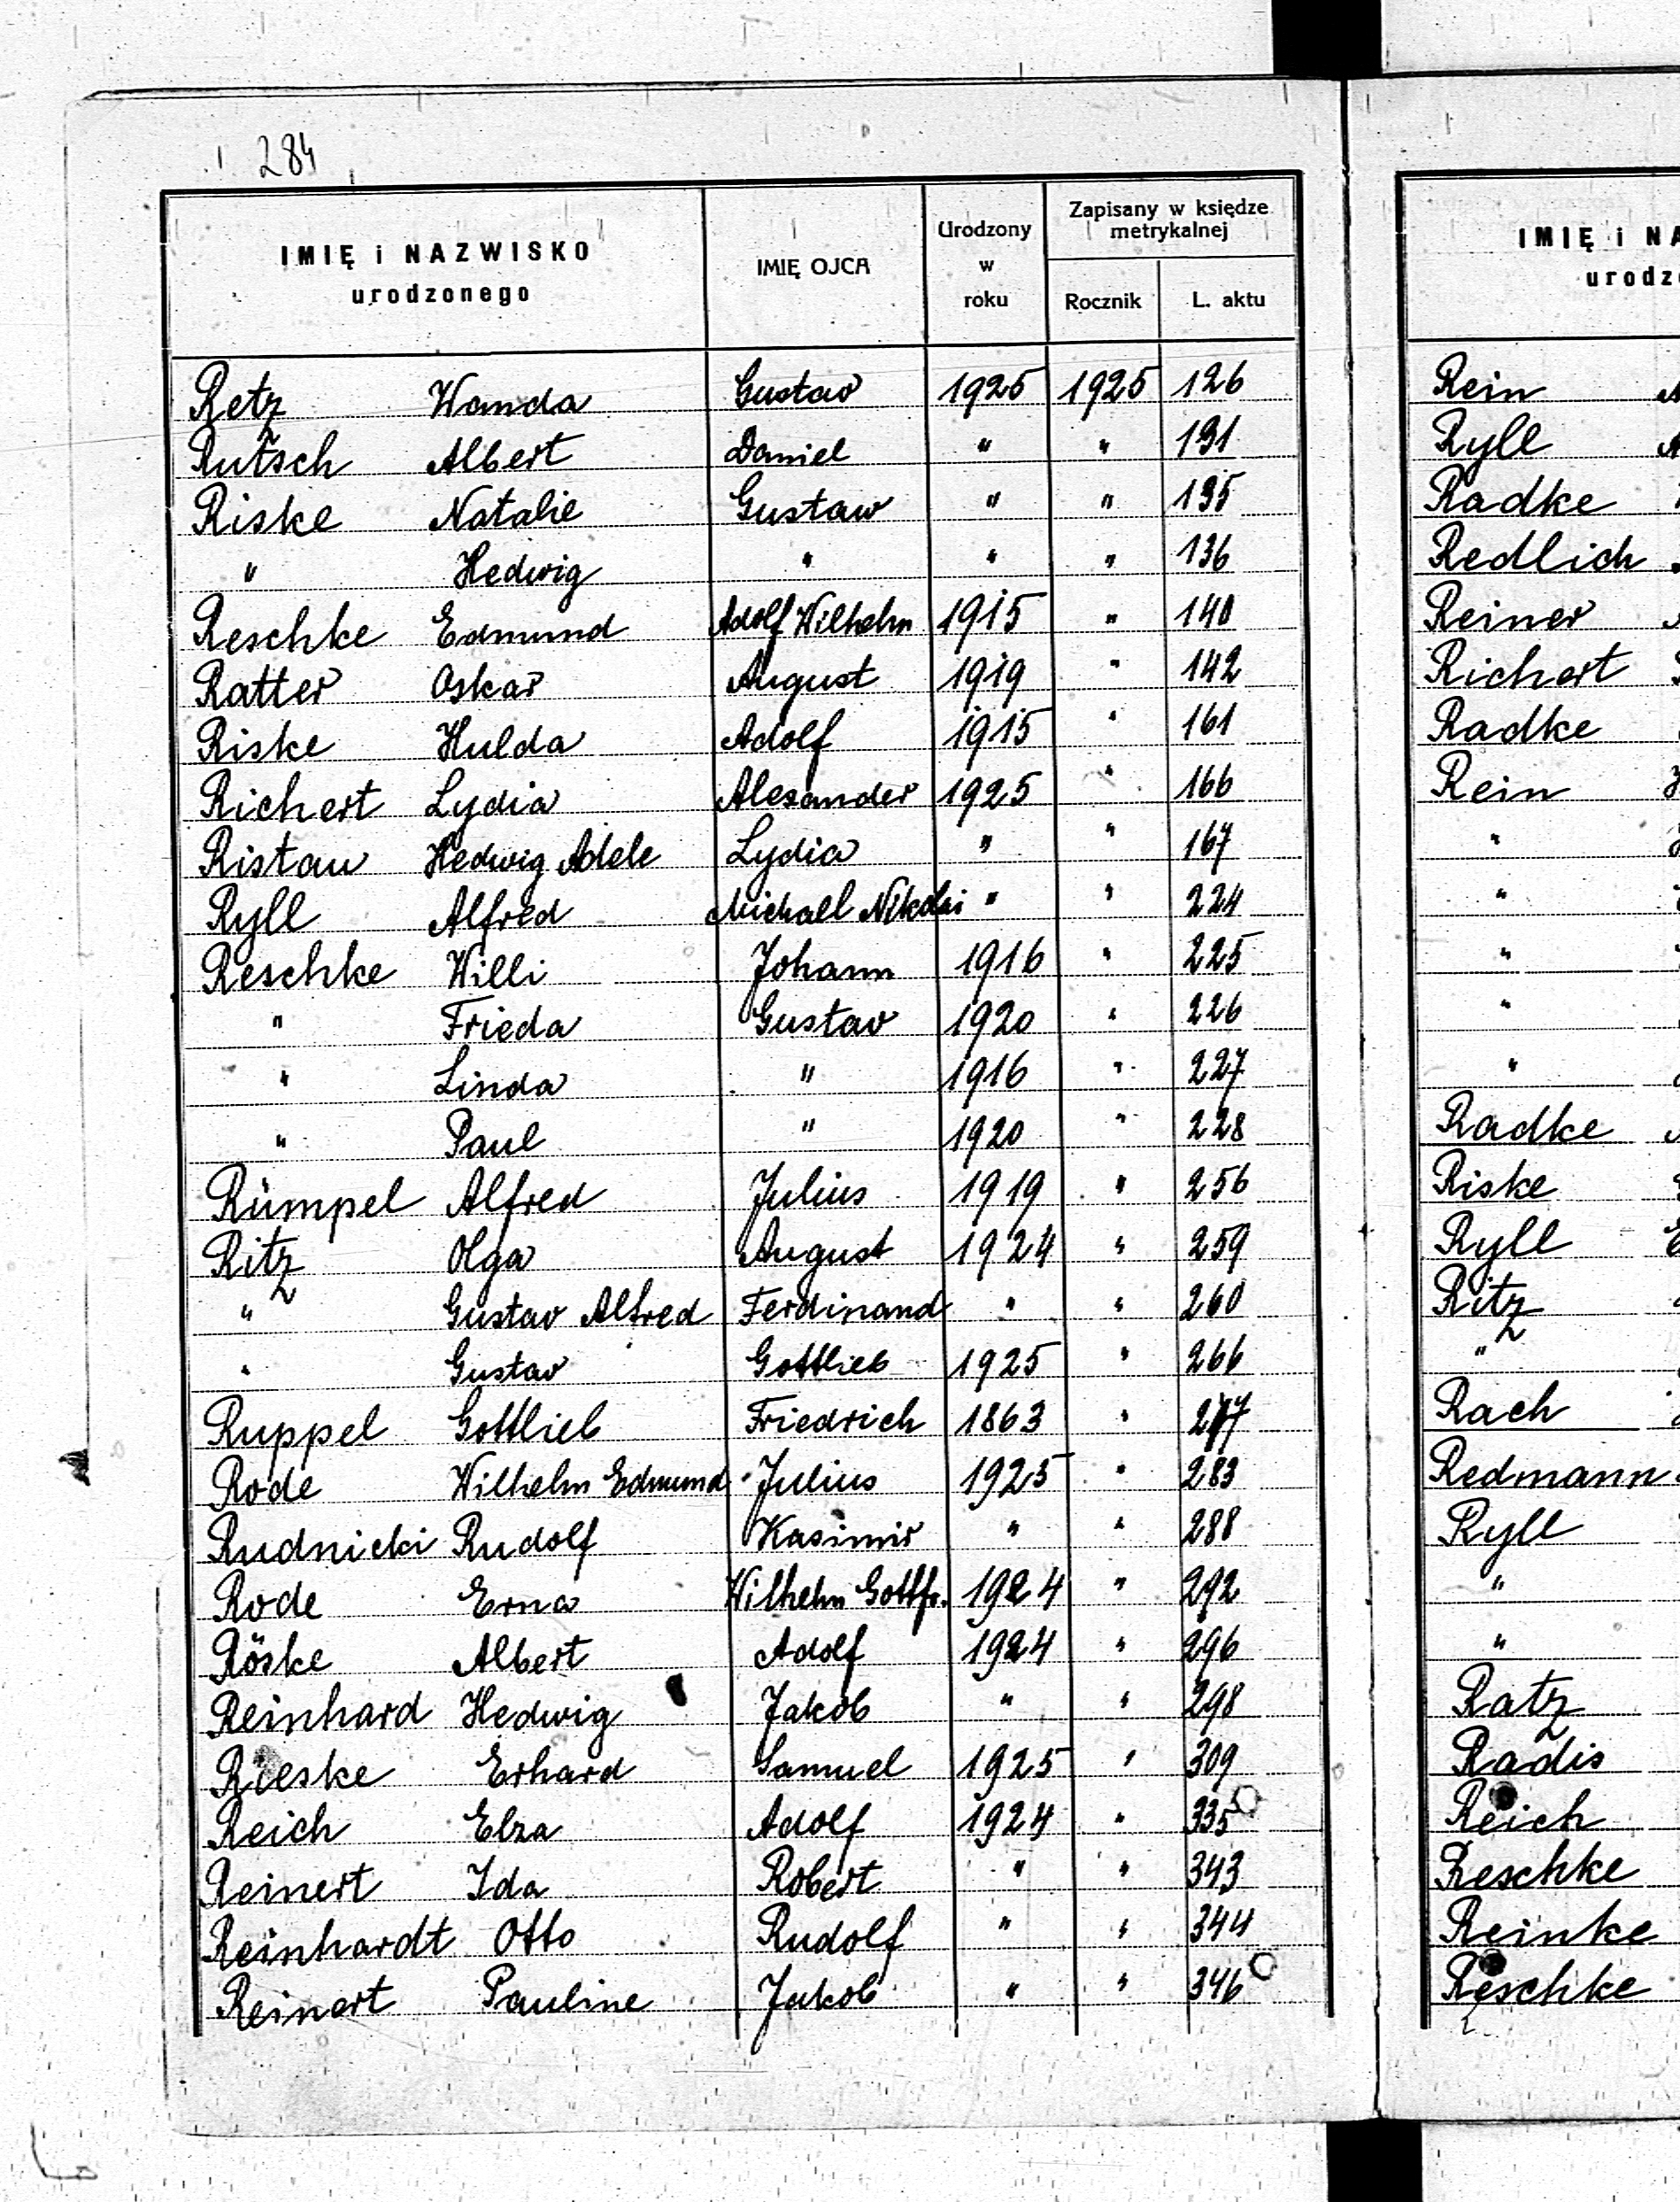 284
IMIĘ i NAZWISKO
urodzonego
IMIĘ OJCA
Urodzony
w
roku
Zapisany w księdze
metrykalnej
Rocznik L. aktu
Retz Wanda Gustav 1925 1925 126
Rutsch Albert Daniel " " 131
Riske Natalie Gustaw " " 135
" Hedwig " " " 136
Reschke Edmund Adolf Wilhelm 1915 " 140
Ratter Oskar August 1919 " 142
Riske Hulda Adolf 1915 " 161
Richert Lydia Alexander 1925 " 166
Ristau Hedwig Adele Lydia " " 167
Ryll Alfred Michall Nikolai " " 224
Reschke Willi Johann 1916 " 225
" Frieda Gustav 1920 " 226
" Linda " 1916 " 227
" Paul " 1920 " 228
Rümpel Alfred Julius 1919 " 256
Ritz Olga August 1924 " 259
" Gustav Alfred Ferdinand " " 260
" Gustav Gottlieb 1925 " 266
Ruppel Gottlieb Friedrich 1863 " 277
Rode Wilhelm Edmund Julius 1925 " 283
Rudnicki Rudolf Kasimir " " 288
Rode Erna Wilhelm Gottfr. 1924 " 292
Röske Albert Adolf 1924 " 296
Reinhard Hedwig Jakob " " 298
Rieske Erhard Samuel 1925 " 309
Reich Elza Adolf 1924 " 335
Reinert Ida Robert " " 343
Reinhardt Otto Rudolf " " 344
Reinert Pauline Jakob " " 346
IMIĘ i NA
urodz
Rein
Ryll
Radke
Redlich
Reiner
Richert
Radke
Rein
"
"
"
"
"
Radke
Riske
Ryll
Ritz
"
Rach
Redmann
Ryll
"
"
Ratz
Radis
Reich
Reschke
Reinke
Reschke